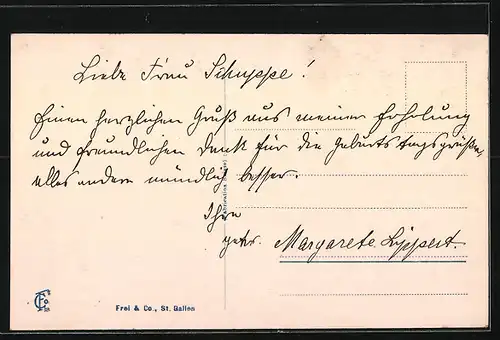 Liebe Frau Schuppe!
Einen herzlichen Gruß aus meiner Erholung
und freundlichen Dank für die Geburtstagsgrüße,
alles andere mündlich besser.
Ihre
getr. Margarete Lippert.
Frei & Co., St. Gallen